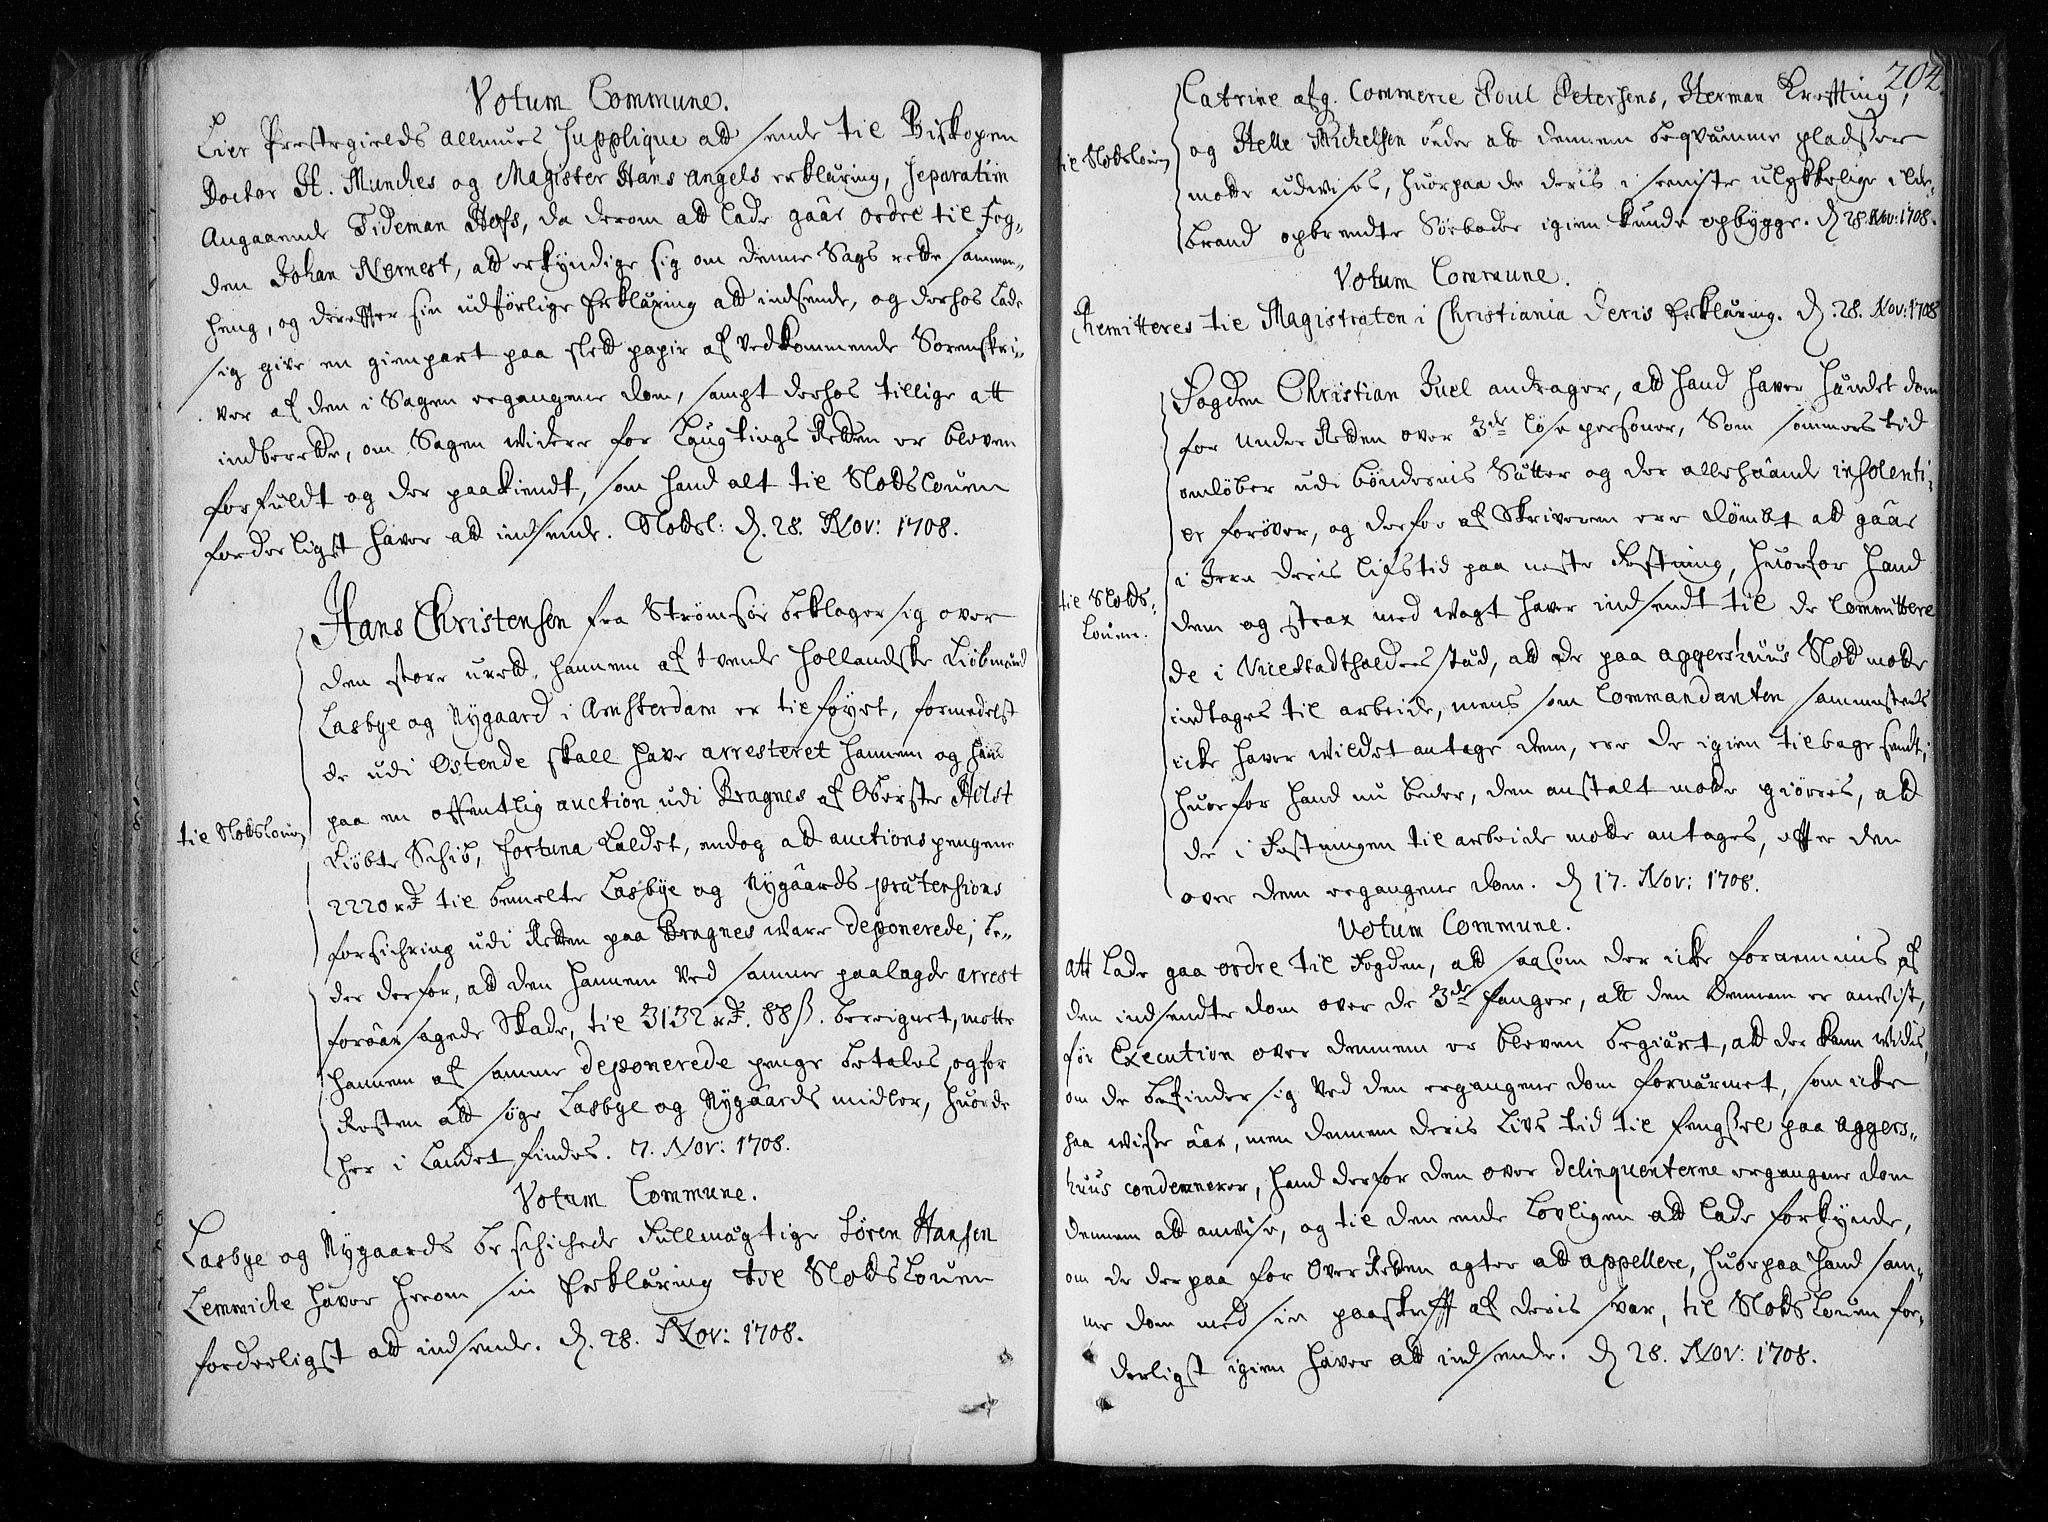 Votum Commune.
Lier Prestegields Allmues Supplique att sende til Biskopen
Doctor H. Munches og Magister Hans Angels erklæring, separatim
Angaaende Tideman Hofs, da derom att lade gaae ordre til Fog-
den Johan Nørnest, att erkyndige sig om denne Sags rette sammen-
heng, og derefter sin udførlige Erklæring att indsende, og derhos lade
sig give en gienpart paa slett papir af Vedkommende Sorenskri-
ver af den i Sagen ergangene dom, sampt derhos tillige att
indberette, om Sagen widere for Laugtings Retten er bleven
forfuldt og der paakiendt, som hand alt til Slodslouen
forderligst haver att indsende. Slodsl: d. 28. Nov: 1708.
Hans Christensen fra Strømsøe beklager sig over
den store urett, hannem af tvende Hollandske Kiøbmænd
Lasbye og Nygaard i Amsterdam er tilføyet, formedelst
de udi Ostende skall have arresteret hannem og hans
paa en offentlig auction udi Bragnes af Oberste Holst
til Slodslouen
Kiøbte Schib, Fortuna Kaldet, endog att auctions pengene
2220 rd. til bemelte Lasbye og Nygaards prætensions
forsichring udi Retten paa Bragnes ware deponerede; be-
der derfor, att den hannem ved samme paalagde arrest
foraarsagede Skade, til 3132 rd. 88 ß. beregnet, motte
hannem af samme deponerede penge betales, og for
Resten att søge Lasbye og Nygaards midler, huor de
her i Landet findes. 7. Nov: 1708.
Votum Commune.
Lasbye og Nygaards beschichede Fullmægtige Søren Hansen
Lemmiche haver herom sin Erklæring til Slodslouen
forderligst att indsende. d. 28. Nov: 1708.
204.
Catrine afg. Commerce Poul Petersens, Herman Krefting,
og Helle Michelsen beder att dennem beqvemme pladser
til Slodslouen
motte udvises, huorpaa de deris i seniste ulykkelige ilde-
brand opbrendte Søeboder igien kunde opbygge. d. 28. Nov: 1708.
Votum Commune.
Remitteres til Magistraten i Christiania deris Erklæring. d. 28. Nov: 1708
Fogden Christian Juel andrager, att hand haver hændet dom
for Under Retten over 3de løse personer, Som sommers tid
omløber udi bøndernis Sætter og der allehaande insolenti-
er forøver, og derfor af Skriveren ere dømbt att gaae
i Jern deris lifstid paa neste Festning, huorfor hand
til Slods-
louen.
dem og strax med wagt haver indsendt til de Committere
de i Vicestadtholders stæd, att de paa Aggershuus Slott motte
indtages til arbeide, mens som Commandanten sammesteds
icke haver wildet antage dem, ere de igien tilbage sendt;
huorfor hand nu beder, den anstalt motte giøres, att
de i Festningen til arbeide motte antages, efter den
over dem ergangene dom. d. 17. Nov: 1708.
Votum Commune.
att lade gaa ordre til Fogden, att saasom der icke fornemmis af
den indsendte dom over de 3de fanger, att den dennem er anvist,
før Execution over dennem er bleven begiært, att der kan widis,
om de befinder sig ved den ergangene dom fornærmet, som icke
paa wisse aar, men dennem deris Livs tid til fengsel paa Aggers-
huus condemnerer, hand derfor den over delinquenterne ergangene dom
dennem att anvise, og til den ende lovligen att lade forkynde,
om de derpaa for Over Retten agter att appellere, huorpaa hand sam-
me dom med sin paaskrifft af deris svar, til Slodslouen for-
derligst igien haver att indsende. d. 28. Nov: 1708.